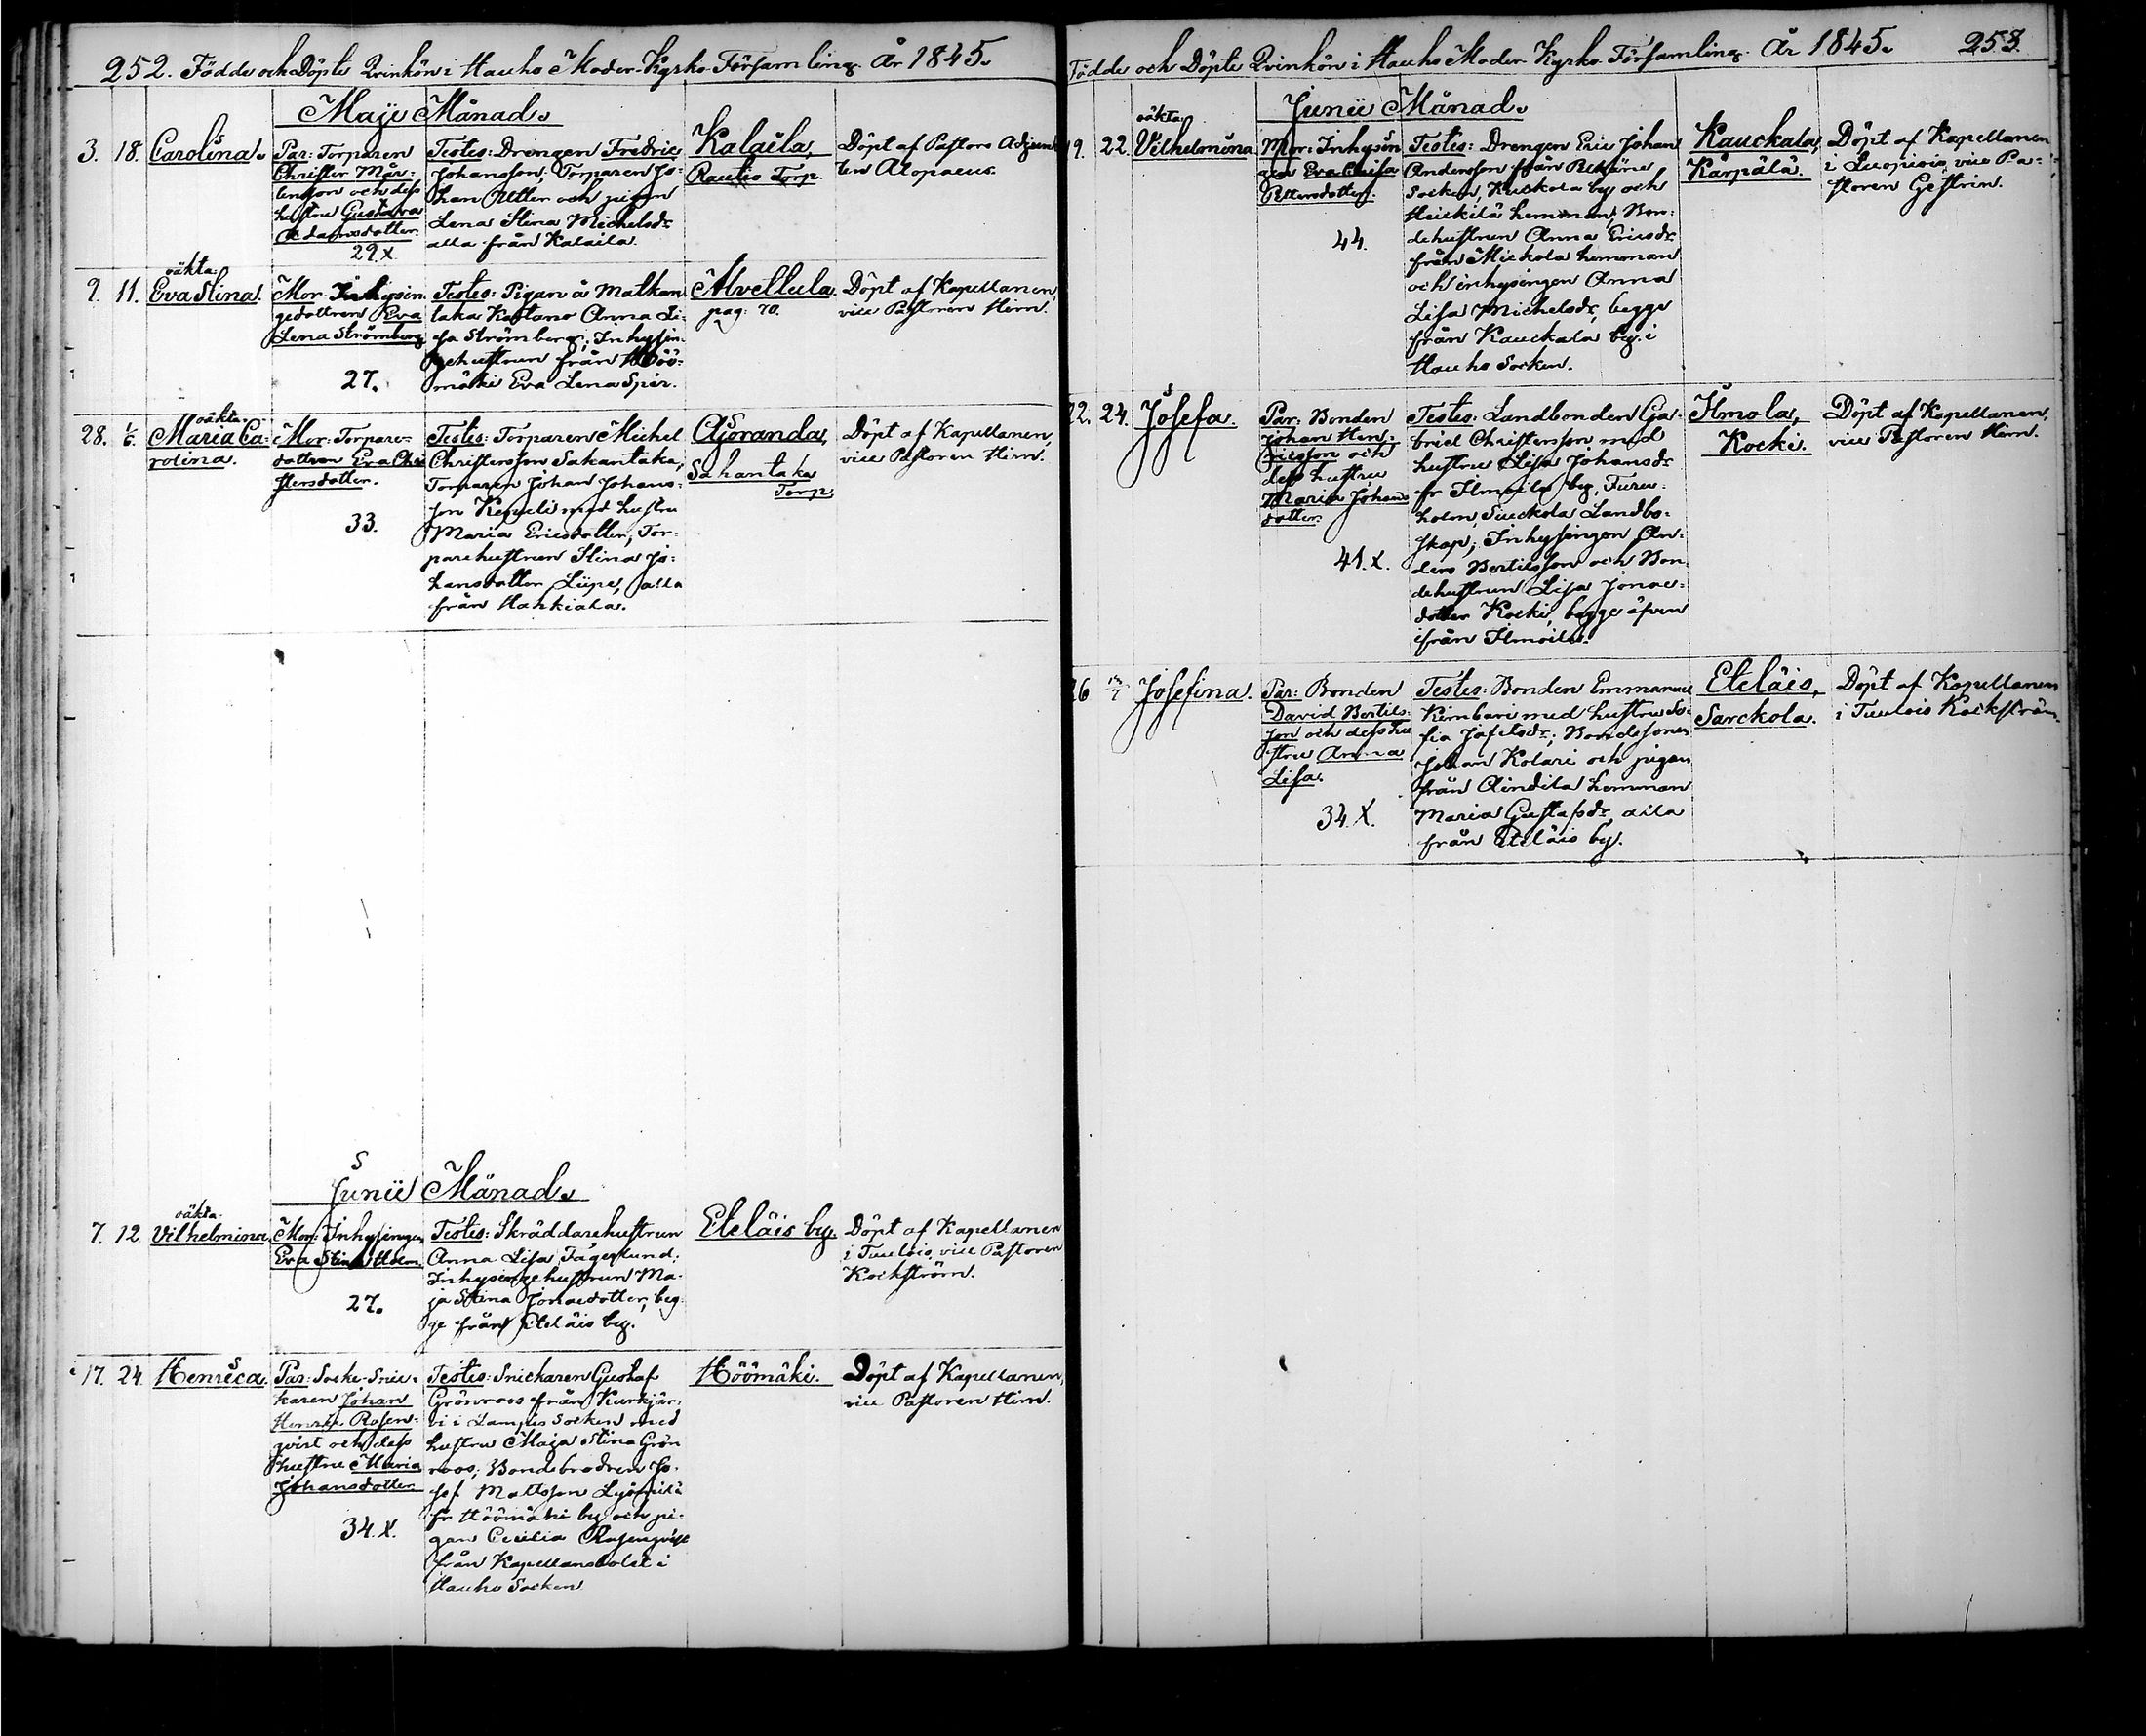 252. Födde och Döpte Qvinkön i Hauho Moder-Kyrko-Församling. År 1845.
Maji Månad.
3. 18. Carolina.
Par: Torparen
Christer Mår-
tensson och dess
hustru Gustava
Adamsdotter.
29.X.
Testes: Drengen Fredric
Johansson, Torparen Jo-
han Utter och pigan
Lena Stina Michelsdr
alla från Kalaila.
Kalaila,
Raulio Torp.
Döpt af Pastors Adjunk-
ten Alopaeus.
9. 11. oäkta
Eva Stina.
Mor: Inhysin-
gedottren Eva
Lena Strömberg
27.
Testes: Pigan å
Anna Li-
sa Strömberg; Inhysin-
gehustrun från Höö-
mäki Eva Lena Spir.
Alvettula.
pag: 70.
Döpt af Kapellanen,
vice Pastoren Hirn.
28. 1/6. oäkta
Maria Ca-
rolina.
Mor: Torpare-
dottren Eva Chri-
stersdotter.
33.
Testes: Torparen Michel
Christersson Sakantaka,
Torparen Johan Johans-
son med hustru
Maria Ericsdotter, Tor-
parehustrun Stina Jo-
hansdotter Liipe, alla
från Hahkiala.
Ajoranda,
Sahantaka
Torp.
Döpt af Kapellanen,
vice Pastoren Hirn.
Junii Månad.
7. 12 oäkta
Vilhelmina
Mor: Inhysingen
Eva Stina Holm.
27.
Testes: Skräddarehustrun
Anna Lisa Fagerlund;
Inhysingehustrun Ma-
ja Stina Jonaedotter, beg-
ge från Eteläis by.
Eteläis by.
Döpt af Kapellanen
i Tuulois, vice Pastoren
Kockström.
17. 24. Henrica.
Par: Socke-Snic-
karen Johan
Henric Rosen-
qvist och dess
hustru Maria
Johansdotter
34.X.
Testes: Snickaren Gustaf
Grönroos från Kurkjär-
vi i Lampis Socken med
hustru Maja Stina Grön
roos; Bondebrodren Jo-
sef Mattsson
fr. Höömäki by och pi-
gan Cecilia Rosenqvist
från Kapellansbolet i
Hauho Socken
Höömäki.
Döpt af Kapellanen,
vice Pastoren Hirn.
Födde och Döpte Qvinkön i Hauho Moder-Kyrko-Församling. År 1845. 253.
Junii Månad.
19. 22. oäkta
Vilhelmina
Mor: Inhysin
gen Eva Caisa
Pettersdotter.
44.
Testes: Drengen Eric Johan
Andersson från
Socken, Kuckola by och
Heickilä hemman; Bon-
dehustrun Anna Ericsdr
från Mickola hemman
och inhysingen Anna
Lisa Michelsdr, begge
från Kauckala by i
Hauho Socken.
Kauckala,
Kärpälä.
Döpt af Kapellanen
i Luopiois, vice Pa-
storen Gestrin.
22. 24. Josefa.
Par: Bonden
Johan Hen-
ricsson och
dess hustru
Maria Johans
dotter.
41.X.
Testes: Landbonden Ga-
briel Christersson med
hustru Lisa Johansdr
fr. Ilmoila by, Furu-
holm, Suckola Landbo-
skap; Inhysingen An-
ders Bertilsson och Bon-
dehustrun Lisa Jonae-
dotter Kocki, begge äfven
ifrån Ilmoila.
Ilmola,
Kocki.
Döpt af Kapellanen,
vice Pastoren Hirn.
26 13/7 Josefina.
Par: Bonden
David Bertils-
son och dess hu
stru Anna
Lisa.
34.X.
Testes: Bonden Emmanuel
Kimbari med hustru So-
fia Josefsdr; Bondesonen
Johan Kolari och pigan
från Aindila hemman
Maria Gustafsdr, alla
från Eteläis by.
Eteläis,
Sarckola.
Döpt af Kapellanen
i Tuulois Kockström.